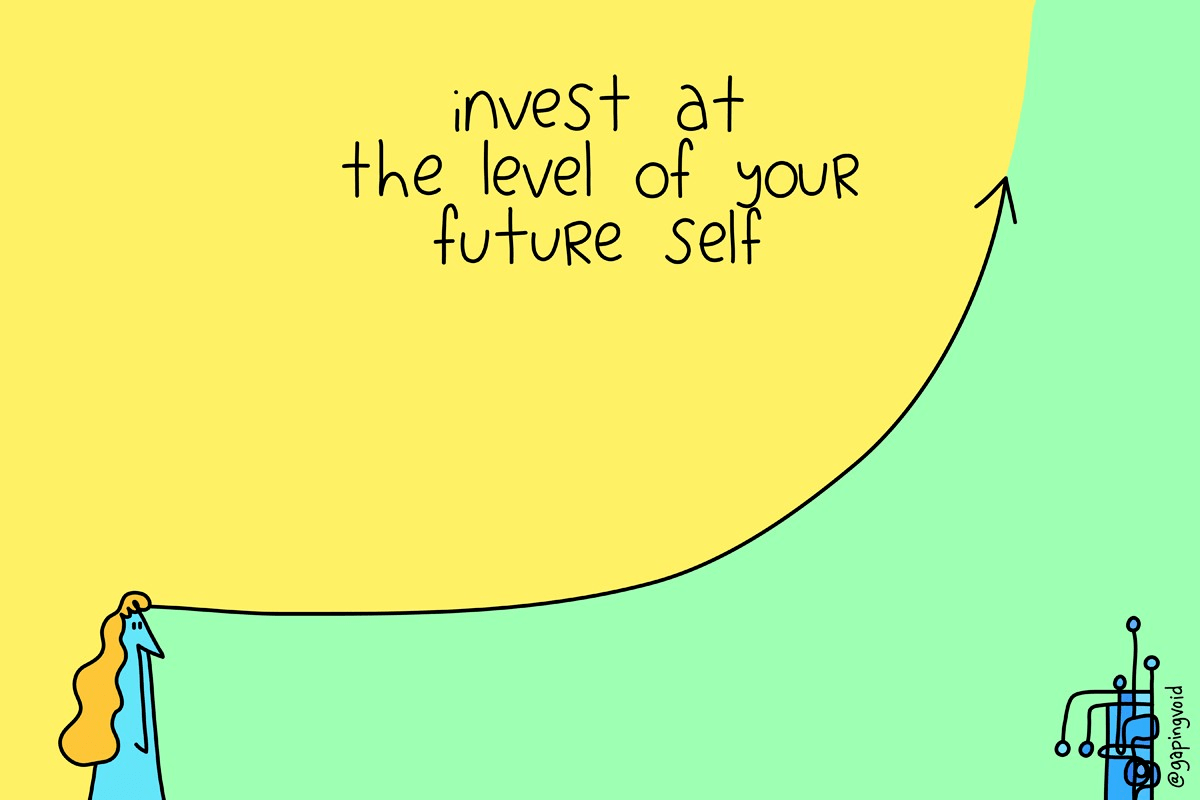 invest at
the level of your
future self
@gapingvoid